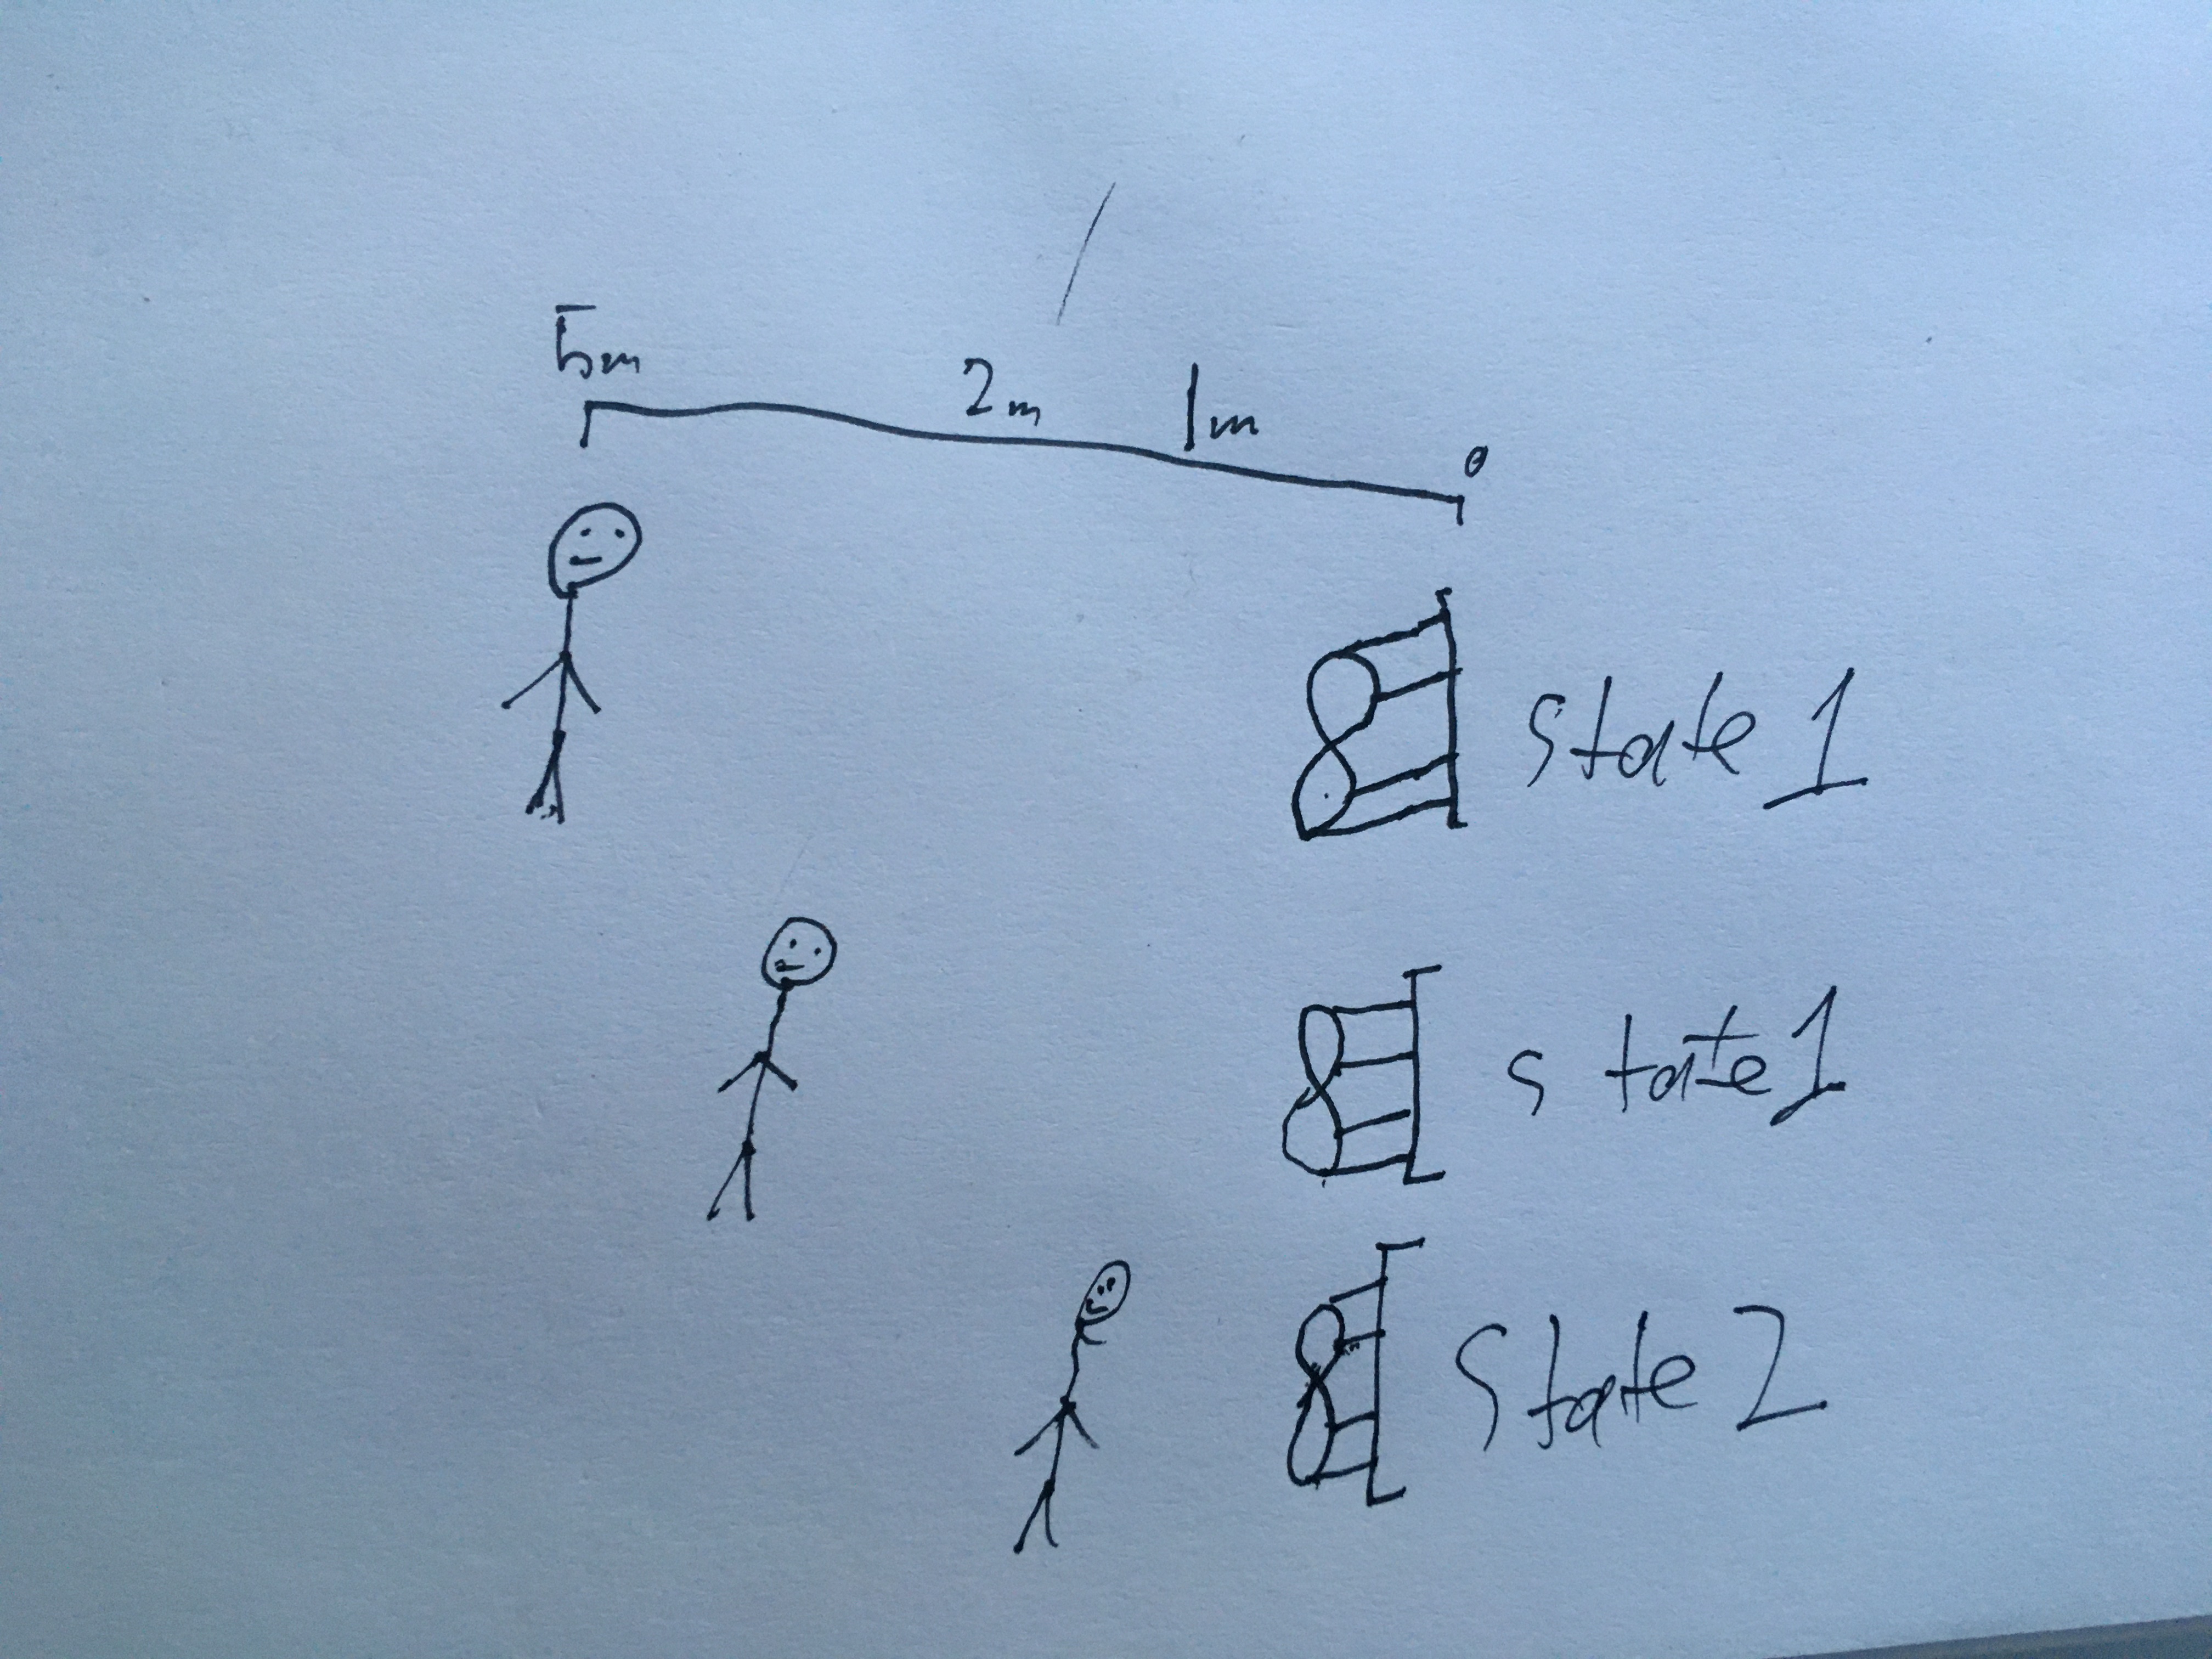 5m 2m 1m 0
State 1
State 1
State 2